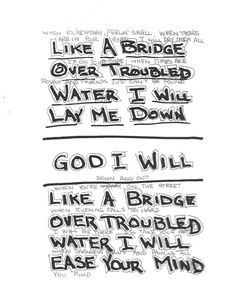 WHEN YOU'RE WEARY, FEELIN' SMALL WHEN TEARS
ARE IN YOUR EYES I WILL DRY THEM ALL
LIKE A BRIDGE
OVER TROUBLED
AND FRIENDS JUST CAN'T BE FOUND
WATER I WILL
LAY ME DOWN
GOD I WILL
DOWN AND OUT
WHEN YOU'RE ON THE STREET
LIKE A BRIDGE
WHEN EVENING FALLS SO HARD
OVER TROUBLED
WATER I WILL
EASE YOUR MIND
YOU FIND